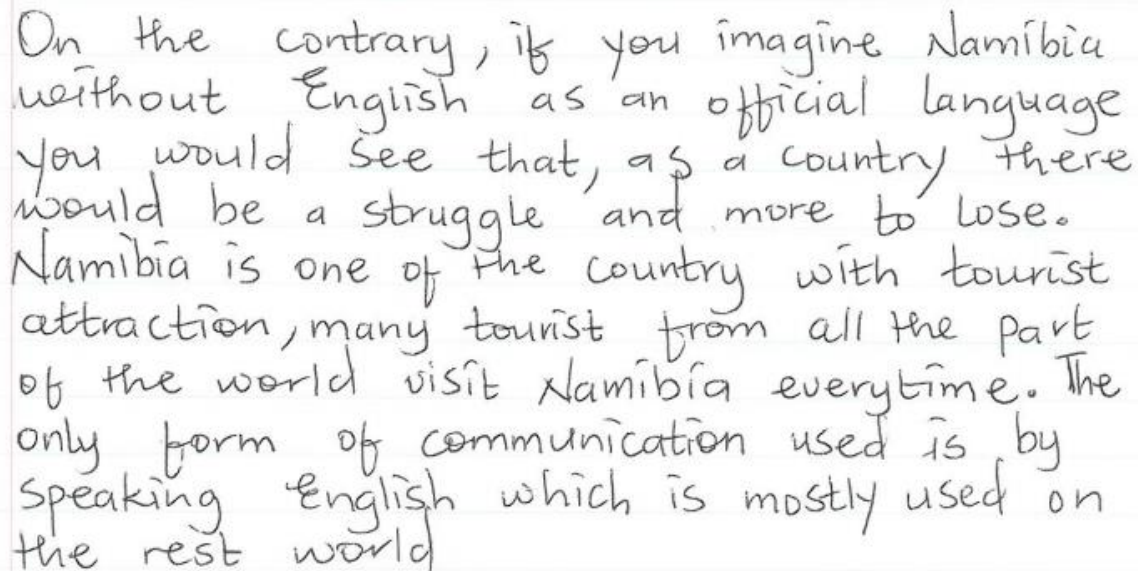 On the contrary, if you imagine Namibia
without English as an official language
you would see that, as a country there
would be a struggle and more to lose.
Namibia is one of the country with tourist
attraction, many tourist from all the part
of the world visit Namibia everytime. The
only form of communication used is by
speaking English which is mostly used on
the rest world